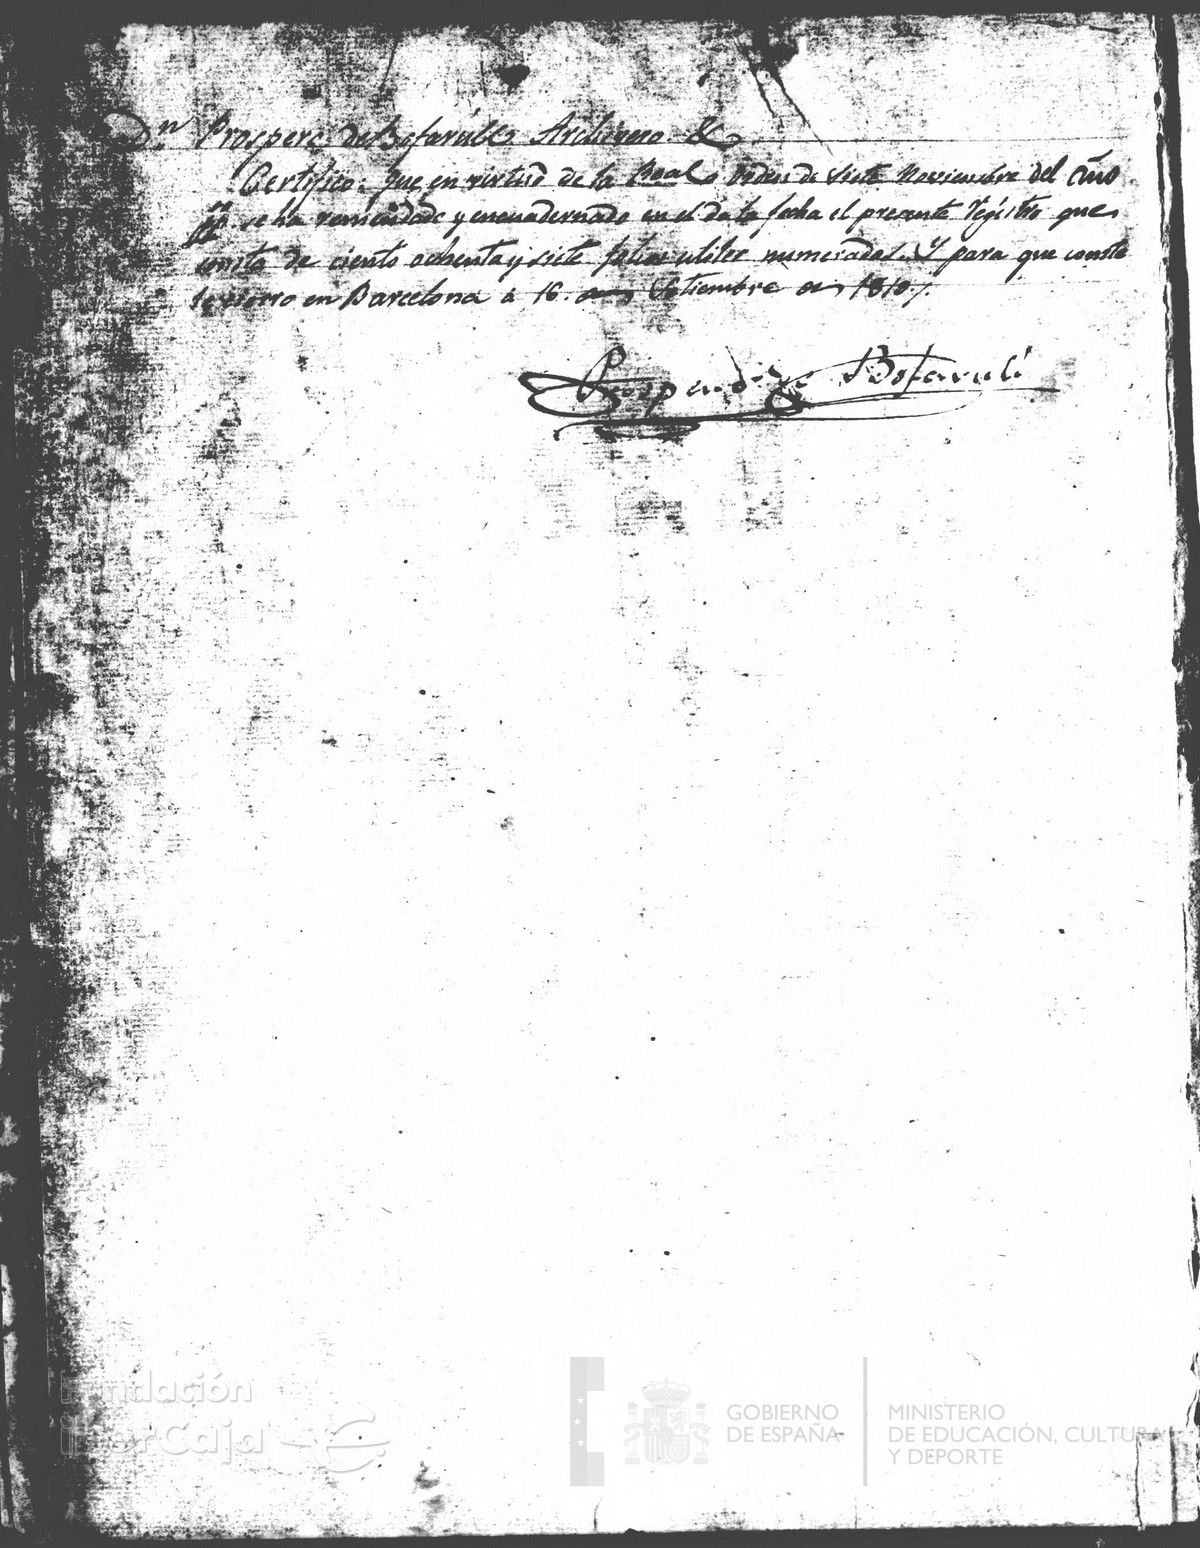 Dn. Prospero de Bofarull Archivero &
Certifico: que en virtud de la Real Orden de siete Noviembre del año
ppº se ha remendado y encuadernado en el de la fecha el presente Registro que
consta de ciento ochenta y siete folios utiles numerados. Y para que conste
lo cierro en Barcelona á 16 de Setiembre de
Prospero de Bofarull
Fundación
iberCaja
GOBIERNO
DE ESPAÑA
MINISTERIO
DE EDUCACIÓN, CULTURA
Y DEPORTE